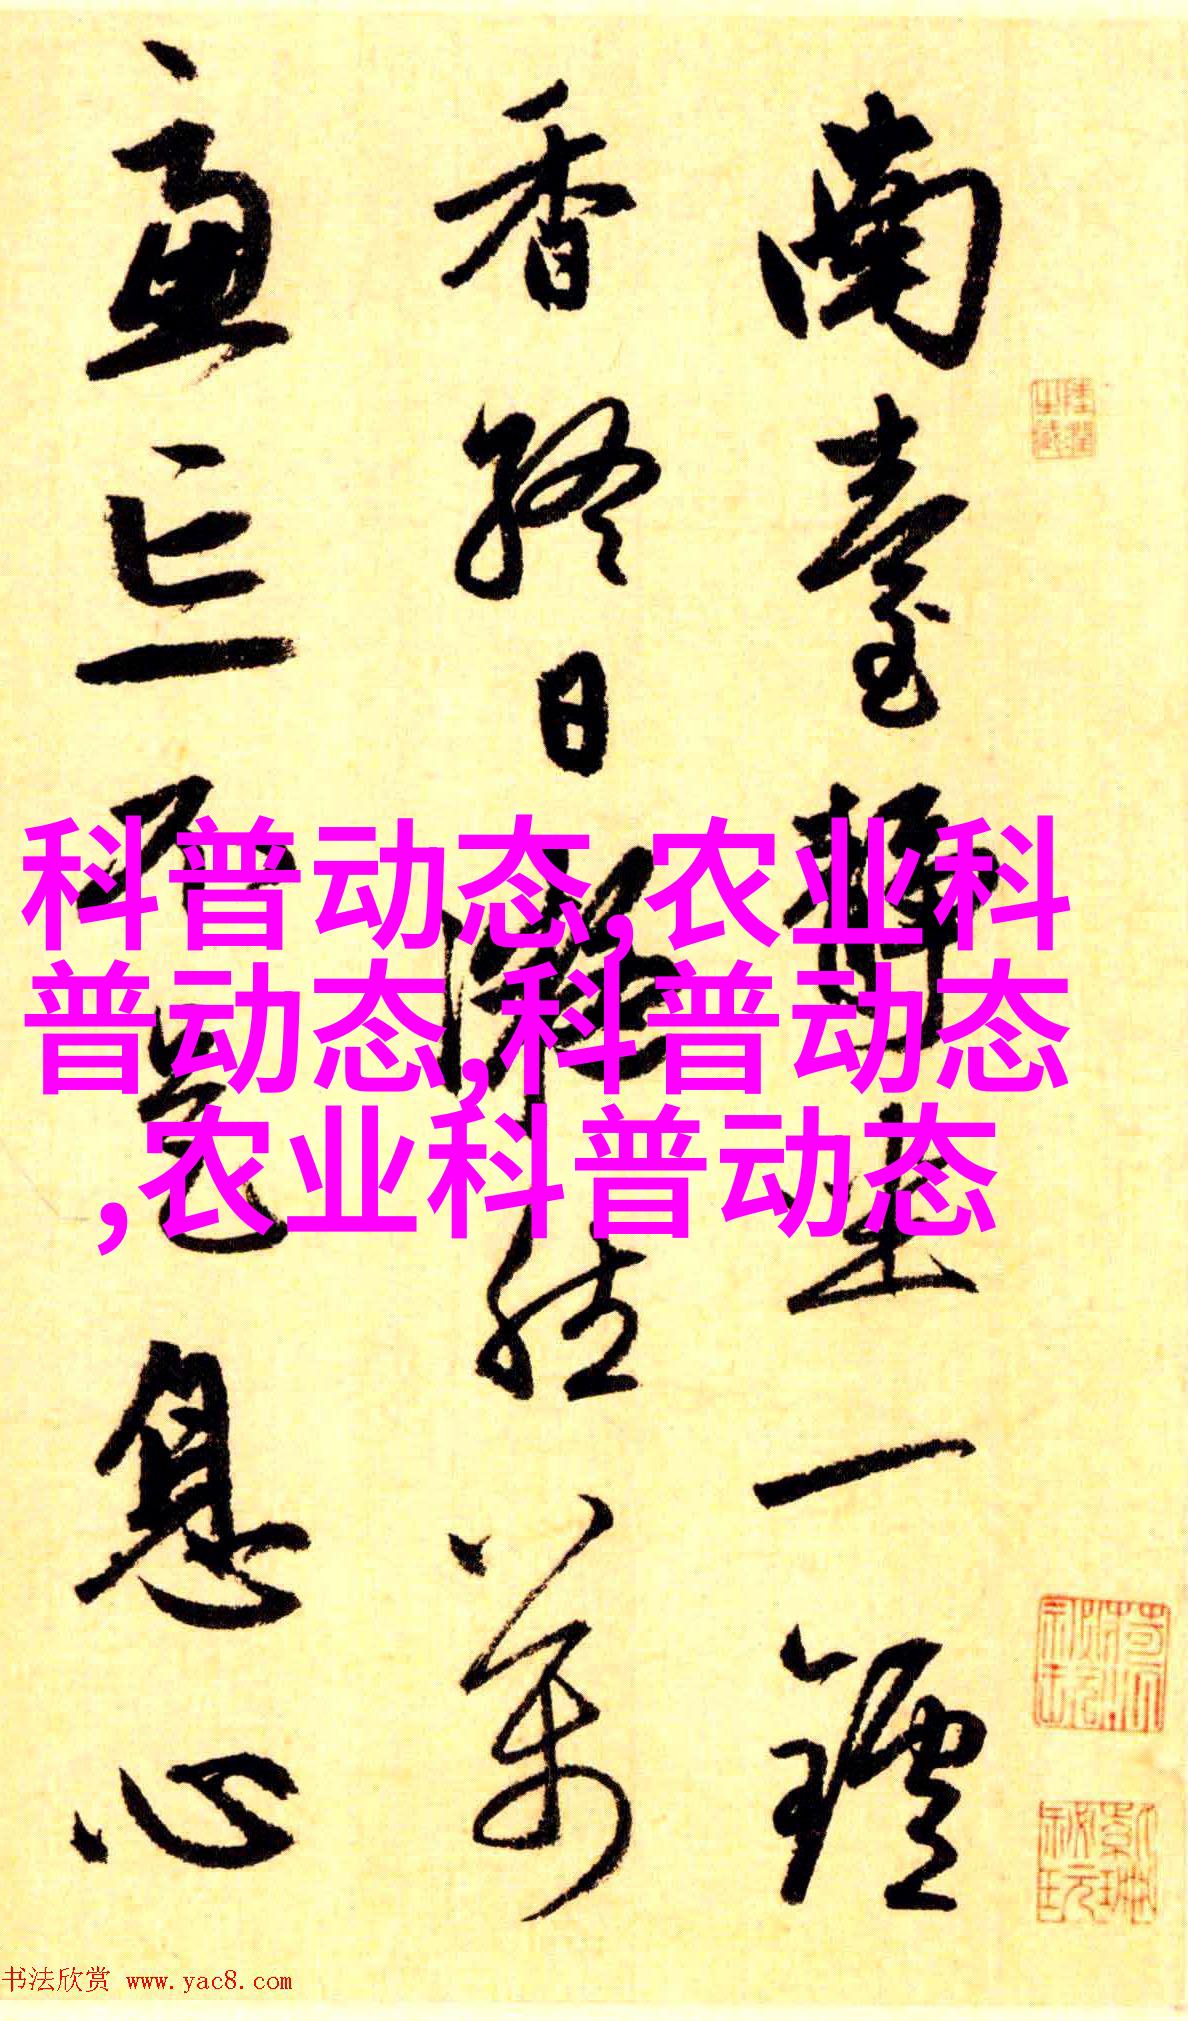 南臺靜坐一鑪
香終日凝然萬
慮忘不是息心
科普动态,农业科
普动态,科普动态
,农业科普动态
书法欣赏 www.yac8.com